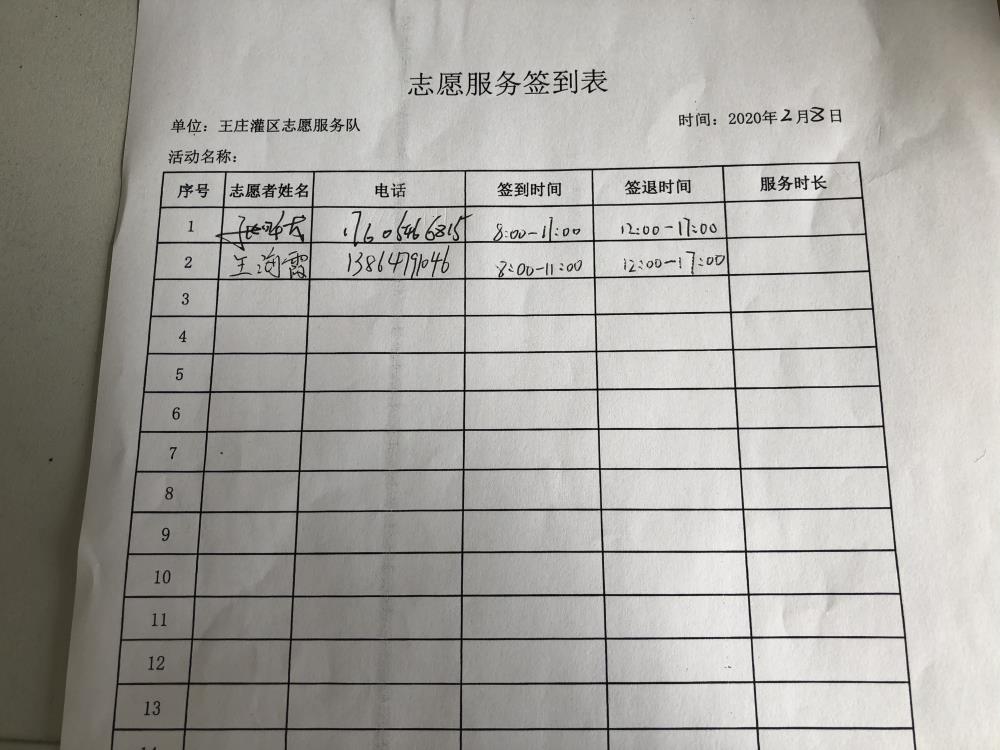 志愿服务签到表
单位：王庄灌区志愿服务队
时间：2020年2月8日
活动名称：
序号 志愿者姓名 电话 签到时间 签退时间 服务时长
1 17605466815 8:00-11:00 12:00-17:00
2 王海霞 13864791046 8:00-11:00 12:00-17:00
3
4
5
6
7
8
9
10
11
12
13